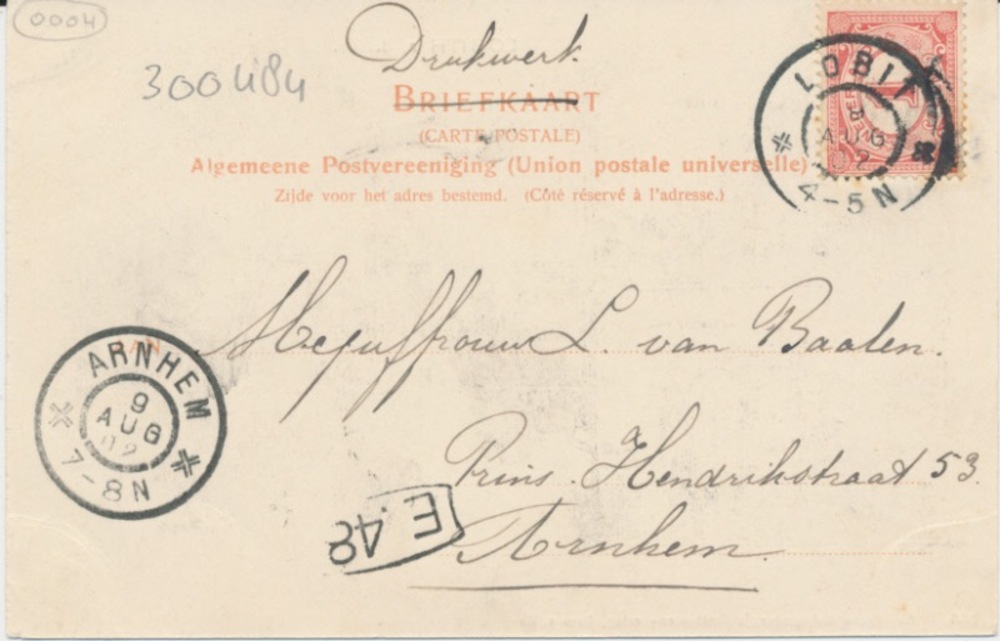 0004
300484
Drukwerk
BRIEFKAART
(CARTE POSTALE)
Algemeene Postvereeniging (Union postale universelle)
Zijde voor het adres bestemd. (Côté réservé à l'adresse.)
LOBIT
8
AUG
2
4-5N
AAN
Mejuffrouw L. van Baalen.
Prins. Hendrikstraat 53.
Arnhem.
ARNHEM
9
AUG
02
7-8N
E.48